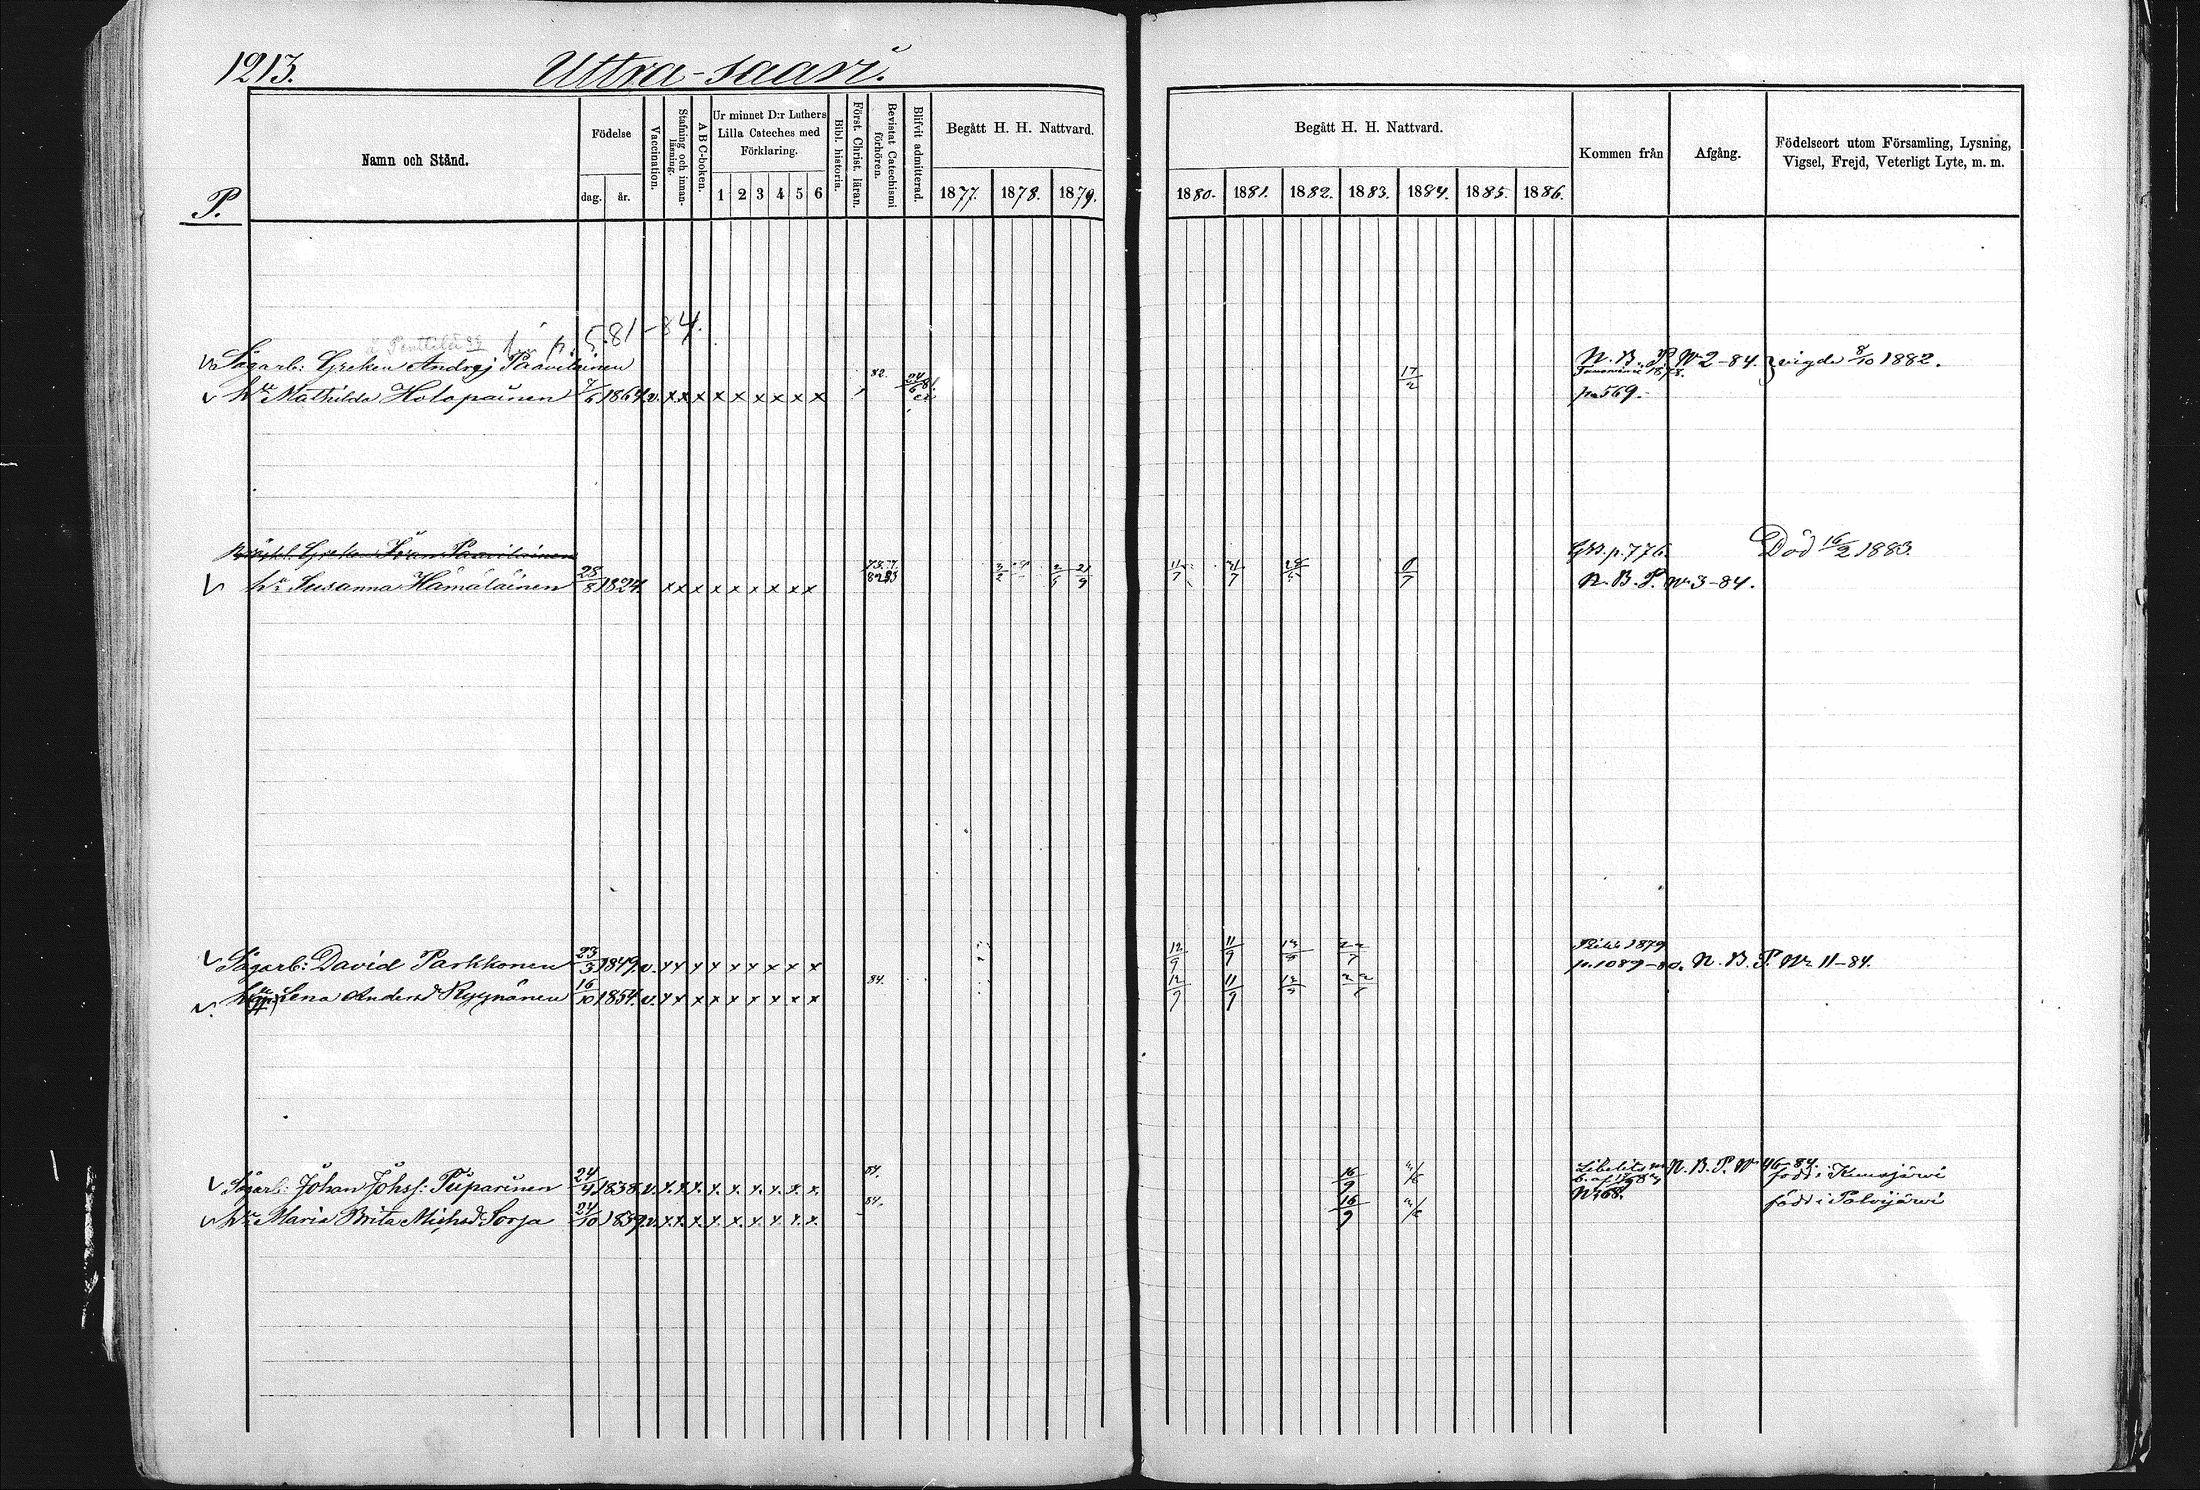 1213.
Uttra-saari.
P.
Namn och Stånd.
Födelse
dag. år.
Vaccination.
Stafning och innanläsning.
A B C-boken.
Ur minnet D:r Luthers
Lilla Cateches med
Förklaring.
1 2 3 4 5 6
Bibl. historia.
Först. Christ. läran.
Bevistat Catechismi förhören.
Blifvit admitterad.
Begått H. H. Nattvard.
1877. 1878. 1879.
Begått H. H. Nattvard.
1880. 1881. 1882. 1883. 1884. 1885. 1886.
Kommen från
Afgång.
Födelseort utom Församling, Lysning,
Vigsel, Frejd, Veterligt Lyte, m. m.
p. 581-84.
Sågarb: Greken Andrej Paavilainen N. B. P. No 2-84. vigde 8/10 1882.
hu Mathilda Holopainen 7/6 1864 v. x x x x x x x x x 82. 24/6 81. 17/2 p 569.
Paavilainen p. 776. Död 16/2 1883.
hu Susanna Hämäläinen 28/8 1824 x x x x x x x x x N. B. P. No 3-84.
Sågarb: David Parkkonen 23/3 1849 v. x x x x x x x x x 12/9 11/9 1879 p. 1089-80. N. B. P. No 11-84.
hu Lena Andersd Ryynänen 16/10 1854 v. x x x x x x x x x 84. 12/9 11/9
Sågarb: Johan Johss: Piiparinen 24/4 1838 v. x. x. x. x. x. x. x. x. x. 84. 16/9 Libelits N. B. P. No 46-84. född i
No 68.
hu Maria Brita Michsd: Sorja 24/10 1839 v. x. x. x. x. x. x. x. x. x. 84. 16/9 född i Polvijärvi